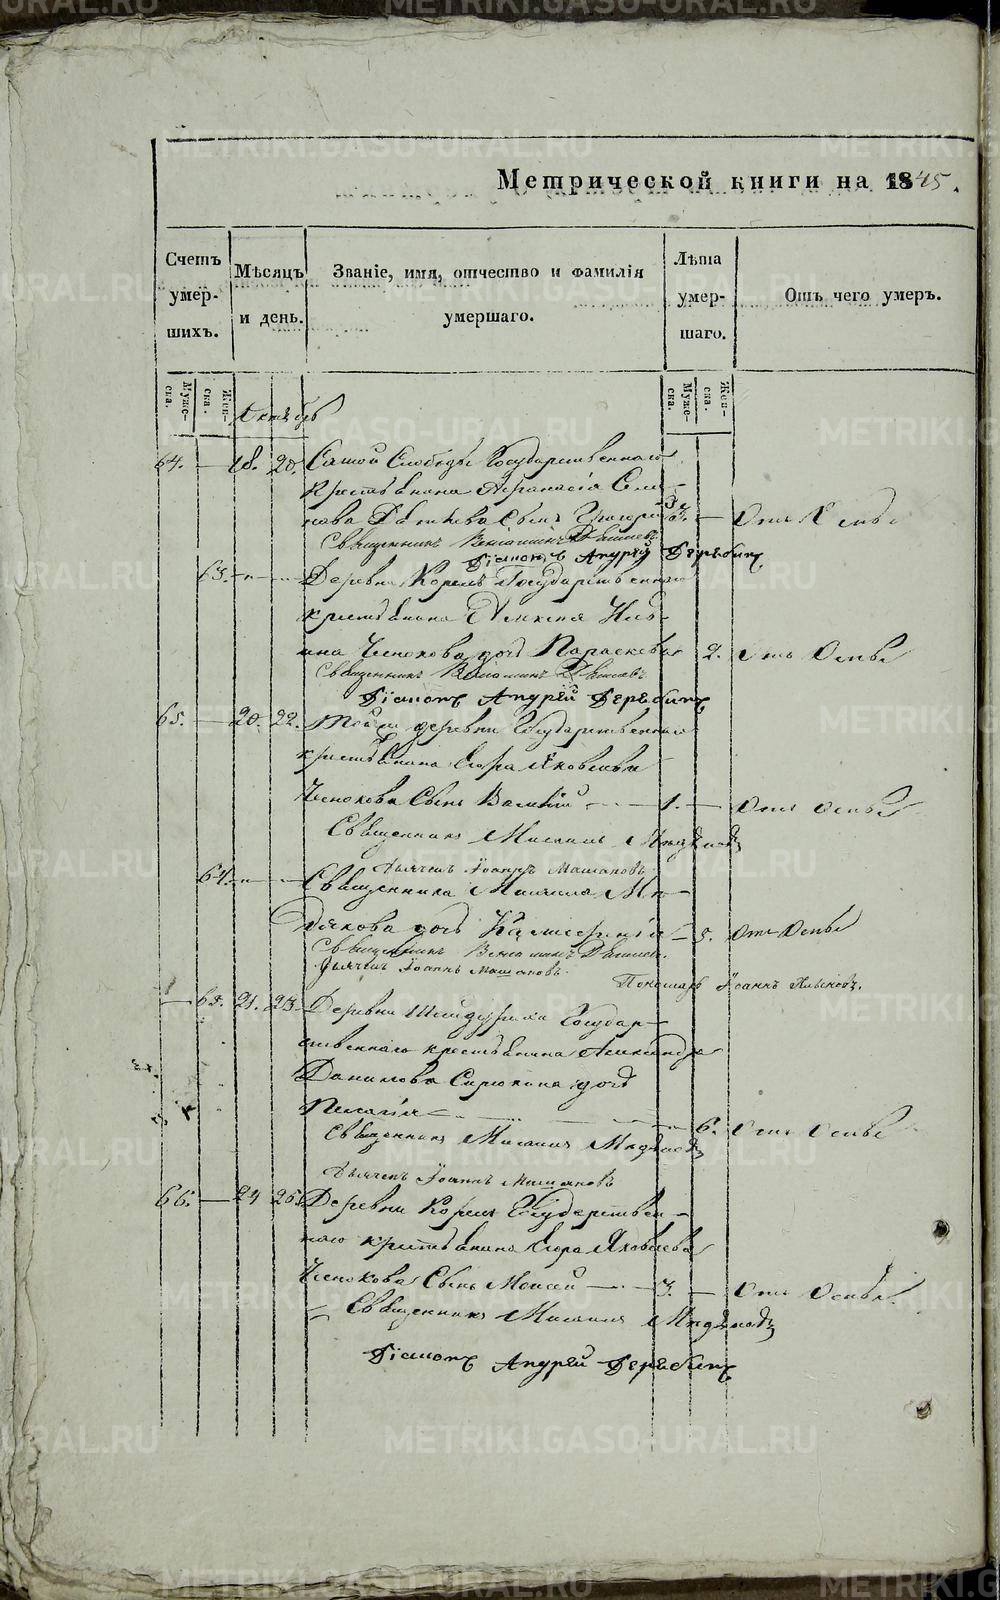 Метрической книги на 1845.
Счетъ умер-шихъ.
Мѣсяцъ и день.
Званіе, имя, отчество и фамилія умершаго.
Лѣта умер-шаго.
Отъ чего умеръ.
Муже-ска. Жен-ска. Муже-ска. Жен-ска.
Октябрь
64. — 18. 20. Самой Слободы Государственнаго
крестьянина Афанасія Семе-
нова сынъ Григорій 3. — Отъ
Священникъ Веніаминъ
Діаконъ Андрей Дерябинъ
63. Деревни Корель Государственнаго
крестьянина
Чеснокова дочь Параскева 2. Отъ Оспы
Священникъ Веніаминъ
Діаконъ Андрей Дерябинъ
65. — 20. 22. Той же деревни Государственнаго
крестьянина Егора Яковлева
Чеснокова Сынъ Василій 1. — Отъ оспы
Священникъ Михаилъ
Дьячекъ Іоаннъ Машановъ
64. Священника Михаила
дочь 5. Отъ Оспы
Священникъ Веніаминъ
Дьячекъ Іоаннъ Машановъ.
Пономарь Іоаннъ
— 65. 21. 23. Деревни Государ-
ственнаго крестьянина Александра
Данилова дочь
Пелагія 6. Отъ Оспы
Священникъ Михаилъ
Дьячекъ Іоаннъ Машановъ
66. — 24 26. Деревни Корель Государствен-
наго крестьянина Егора Яковлева
Чеснокова Сынъ Моисей 3. — Отъ Оспы
Священникъ Михаилъ
Діаконъ Андрей Дерябинъ
METRIKI.GASO-URAL.RU